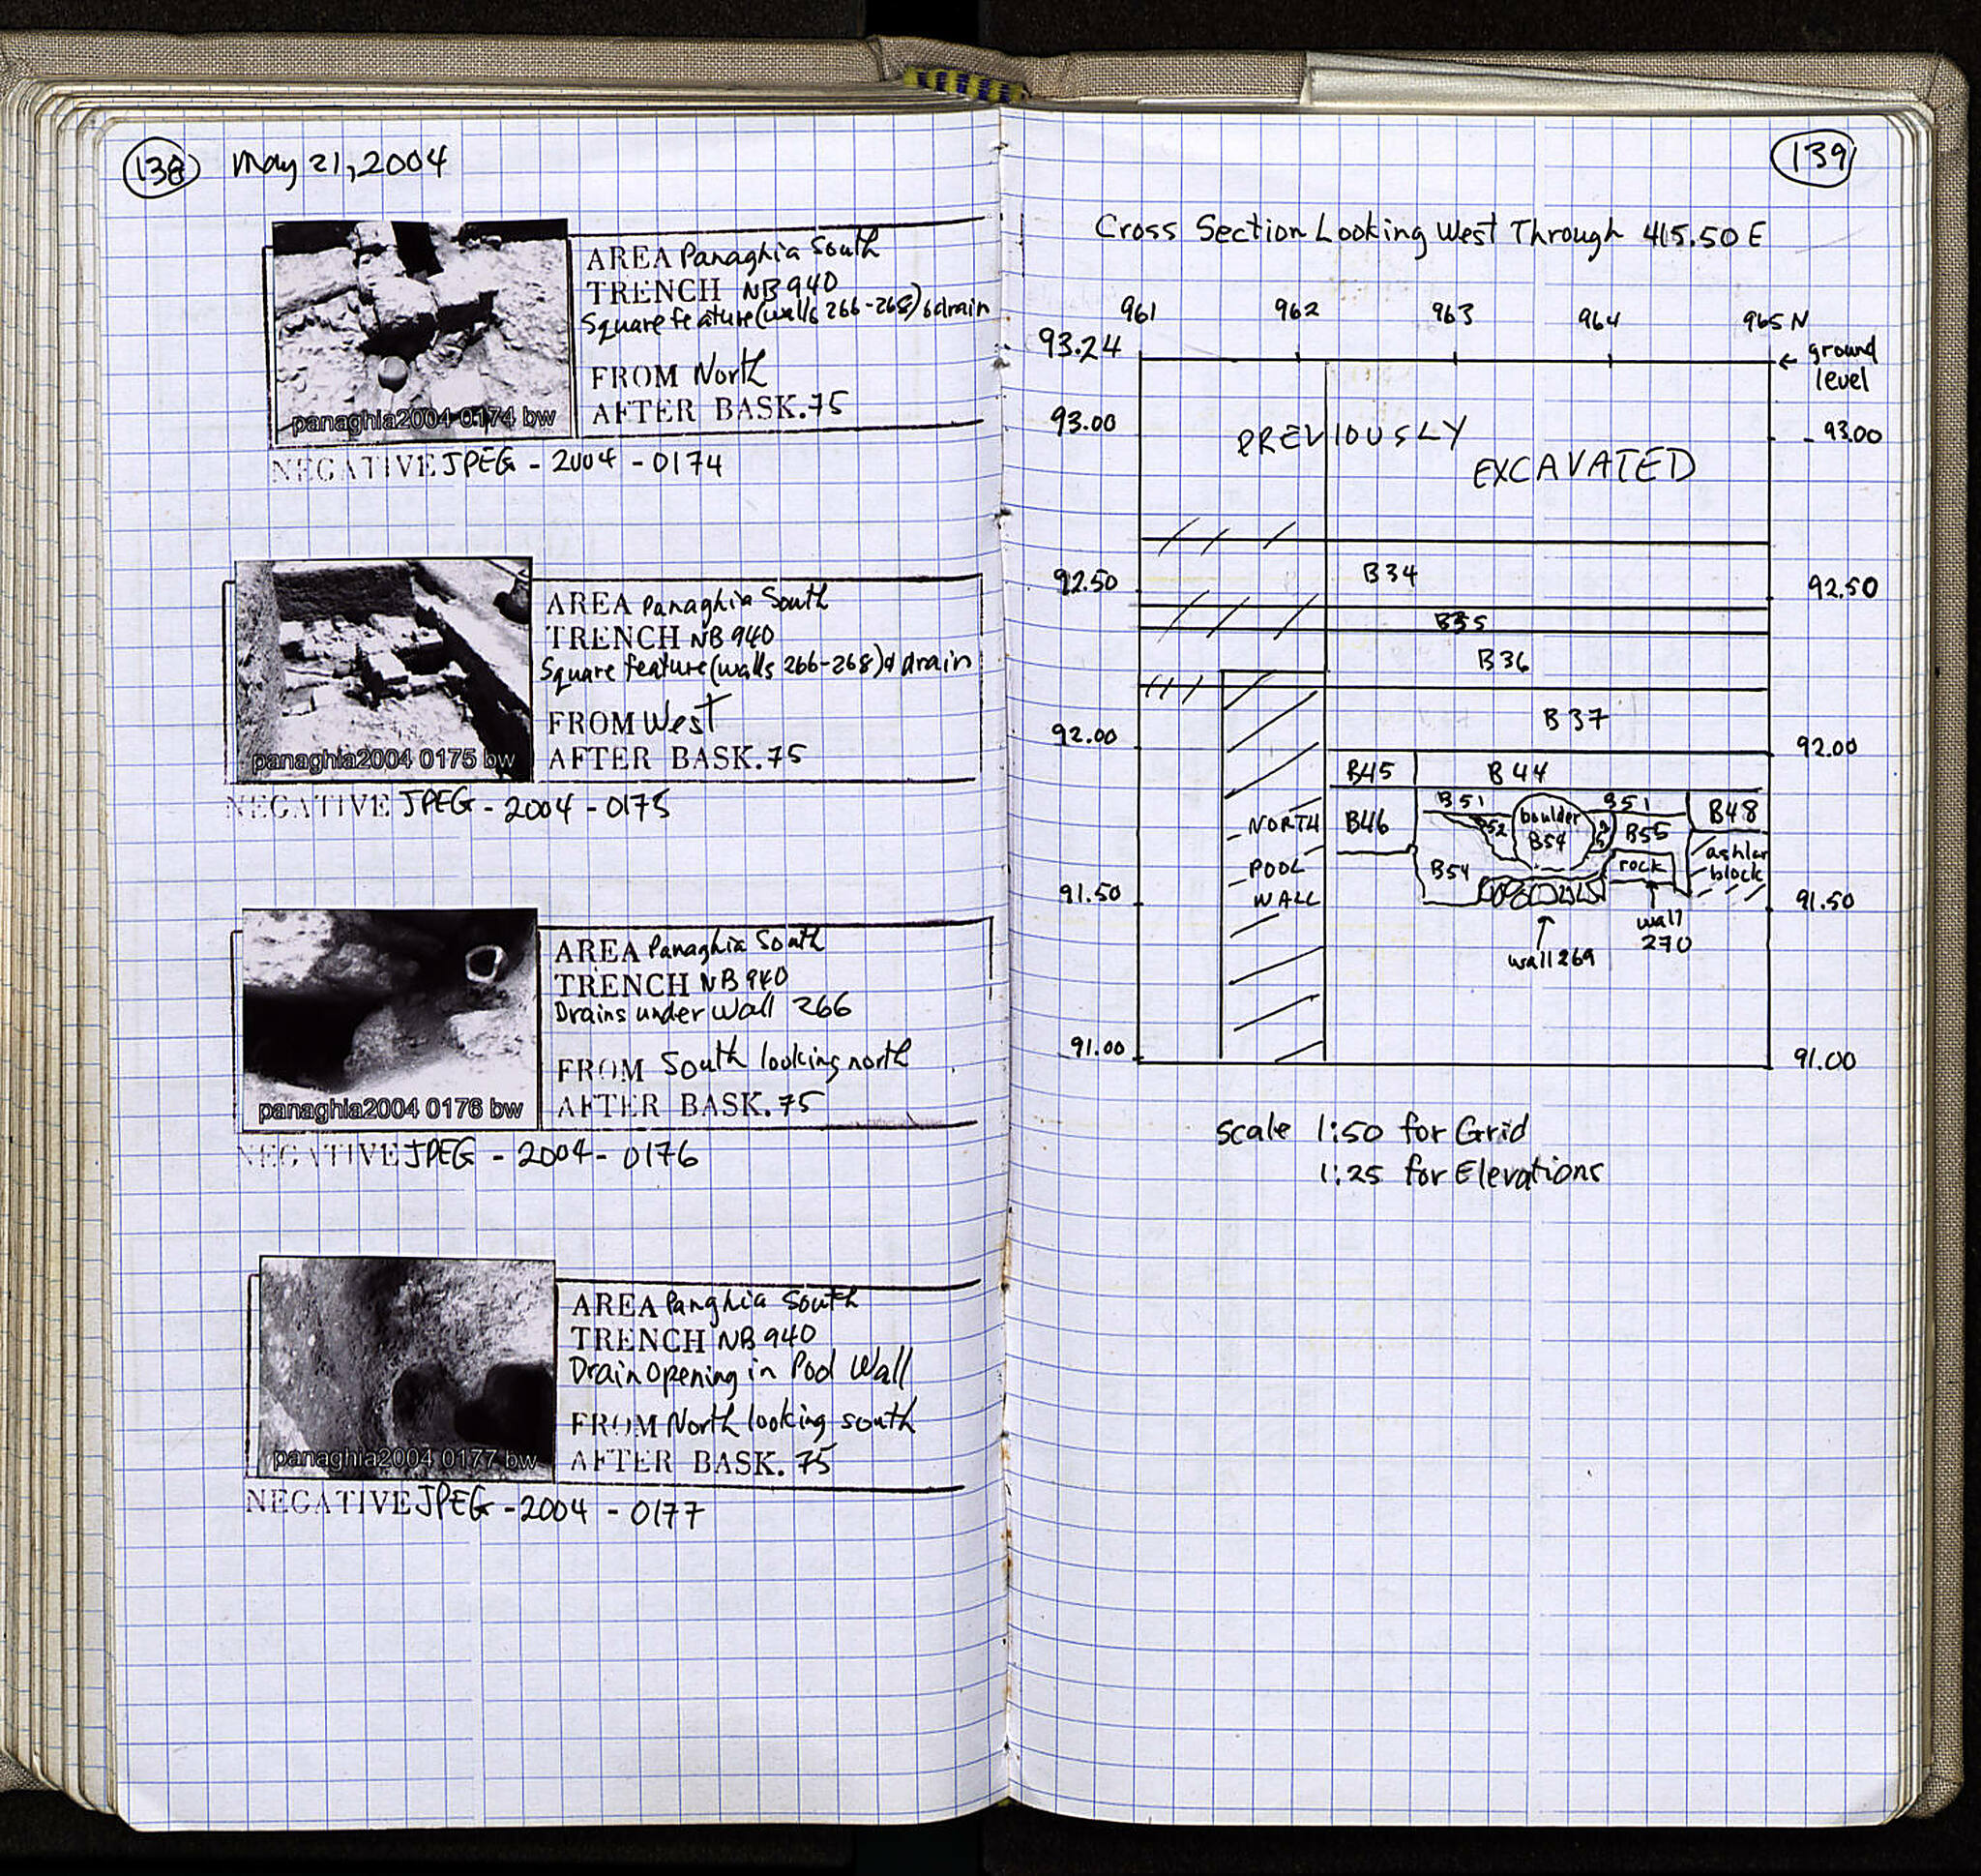 138 May 21, 2004
AREA Panaghia South
TRENCH NB 940
Square feature (walls 266-268) & drain
FROM North
AFTER BASK. 75
panaghia2004 0174 bw
NEGATIVE JPEG - 2004 - 0174
AREA Panaghia South
TRENCH NB 940
Square feature (walls 266-268) & drain
FROM West
AFTER BASK. 75
panaghia2004 0175 bw
NEGATIVE JPEG - 2004 - 0175
AREA Panaghia South
TRENCH NB 940
Drains under Wall 266
FROM South looking north
AFTER BASK. 75
panaghia2004 0176 bw
NEGATIVE JPEG - 2004 - 0176
AREA Panghia South
TRENCH NB 940
Drain Opening in Pool Wall
FROM North looking south
AFTER BASK. 75
panaghia2004 0177 bw
NEGATIVE JPEG - 2004 - 0177
139
Cross Section Looking West Through 415.50 E
961 962 963 964 965 N
93.24 ← ground level
93.00 PREVIOUSLY - 93.00
EXCAVATED
92.50 B34 92.50
B35
B36
B37
92.00 92.00
B45 B44
B51 B51 B48
NORTH B46 B52 boulder B55
B54
POOL B54 rock ashlar block
91.50 WALL 91.50
wall 270
wall 269
91.00 91.00
Scale 1:50 for Grid
1:25 for Elevations